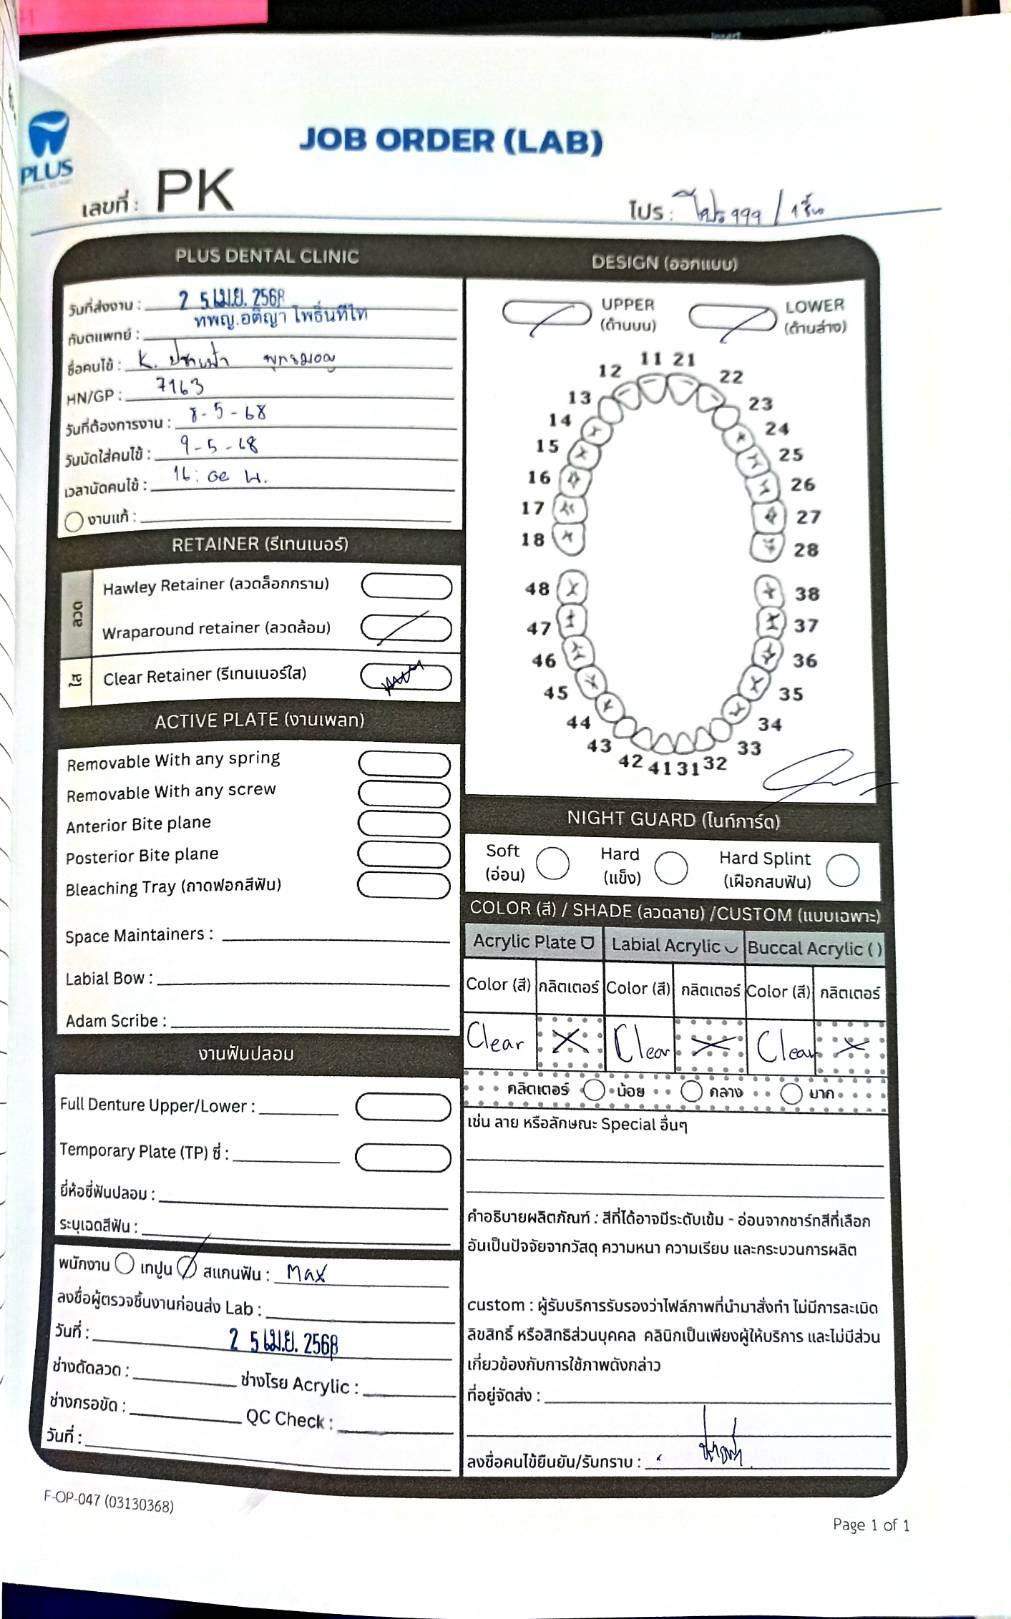 PLUS
JOB ORDER (LAB)
เลขที่ : PK
โปร : โปร 999 / 1ชิ้น
PLUS DENTAL CLINIC
วันที่ส่งงาน : 2 5 เม.ย. 2568
ทันตแพทย์ : ทพญ.อติญา โพธิ์นทีไท
ชื่อคนไข้ : K.
HN/GP : 7163
วันที่ต้องการงาน : 8-5-68
วันนัดใส่คนไข้ : 9-5-68
เวลานัดคนไข้ : 16: น.
งานแก้ :
RETAINER (รีเทนเนอร์)
ลวด
Hawley Retainer (ลวดล็อกกราม)
Wraparound retainer (ลวดล้อม)
ใส
Clear Retainer (รีเทนเนอร์ใส)
ACTIVE PLATE (งานเพลท)
Removable With any spring
Removable With any screw
Anterior Bite plane
Posterior Bite plane
Bleaching Tray (ถาดฟอกสีฟัน)
Space Maintainers :
Labial Bow :
Adam Scribe :
งานฟันปลอม
Full Denture Upper/Lower :
Temporary Plate (TP) ซี่ :
ยี่ห้อซี่ฟันปลอม :
ระบุเฉดสีฟัน :
พนักงาน เทปูน สแกนฟัน : Max
ลงชื่อผู้ตรวจชิ้นงานก่อนส่ง Lab :
วันที่ : 2 5 เม.ย. 2568
ช่างดัดลวด : ช่างโรย Acrylic :
ช่างกรอขัด : QC Check :
วันที่ :
DESIGN (ออกแบบ)
UPPER LOWER
(ด้านบน) (ด้านล่าง)
11 21
12 22
13 23
14 24
15 25
16 26
17 27
18 28
48 38
47 37
46 36
45 35
44 34
43 33
42 41 31 32
NIGHT GUARD (ไนท์การ์ด)
Soft Hard Hard Splint
(อ่อน) (แข็ง) (เฝือกสบฟัน)
COLOR (สี) / SHADE (ลวดลาย) /CUSTOM (แบบเฉพาะ)
Acrylic Plate Labial Acrylic Buccal Acrylic ( )
Color (สี) กลิตเตอร์ Color (สี) กลิตเตอร์ Color (สี) กลิตเตอร์
Clear X Clear X Clear X
กลิตเตอร์ น้อย กลาง มาก
เช่น ลาย หรือลักษณะ Special อื่นๆ
คำอธิบายผลิตภัณฑ์ : สีที่ได้อาจมีระดับเข้ม - อ่อนจากชาร์ทสีที่เลือก
อันเป็นปัจจัยจากวัสดุ ความหนา ความเรียบ และกระบวนการผลิต
custom : ผู้รับบริการรับรองว่าไฟล์ภาพที่นำมาสั่งทำ ไม่มีการละเมิด
ลิขสิทธิ์ หรือสิทธิส่วนบุคคล คลินิกเป็นเพียงผู้ให้บริการ และไม่มีส่วน
เกี่ยวข้องกับการใช้ภาพดังกล่าว
ที่อยู่จัดส่ง :
ลงชื่อคนไข้ยืนยัน/รับทราบ :
F-OP-047 (03130368)
Page 1 of 1